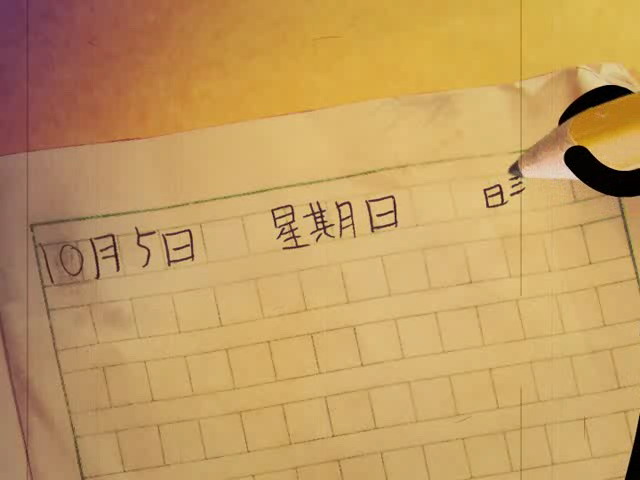 10月5日 星期日 日